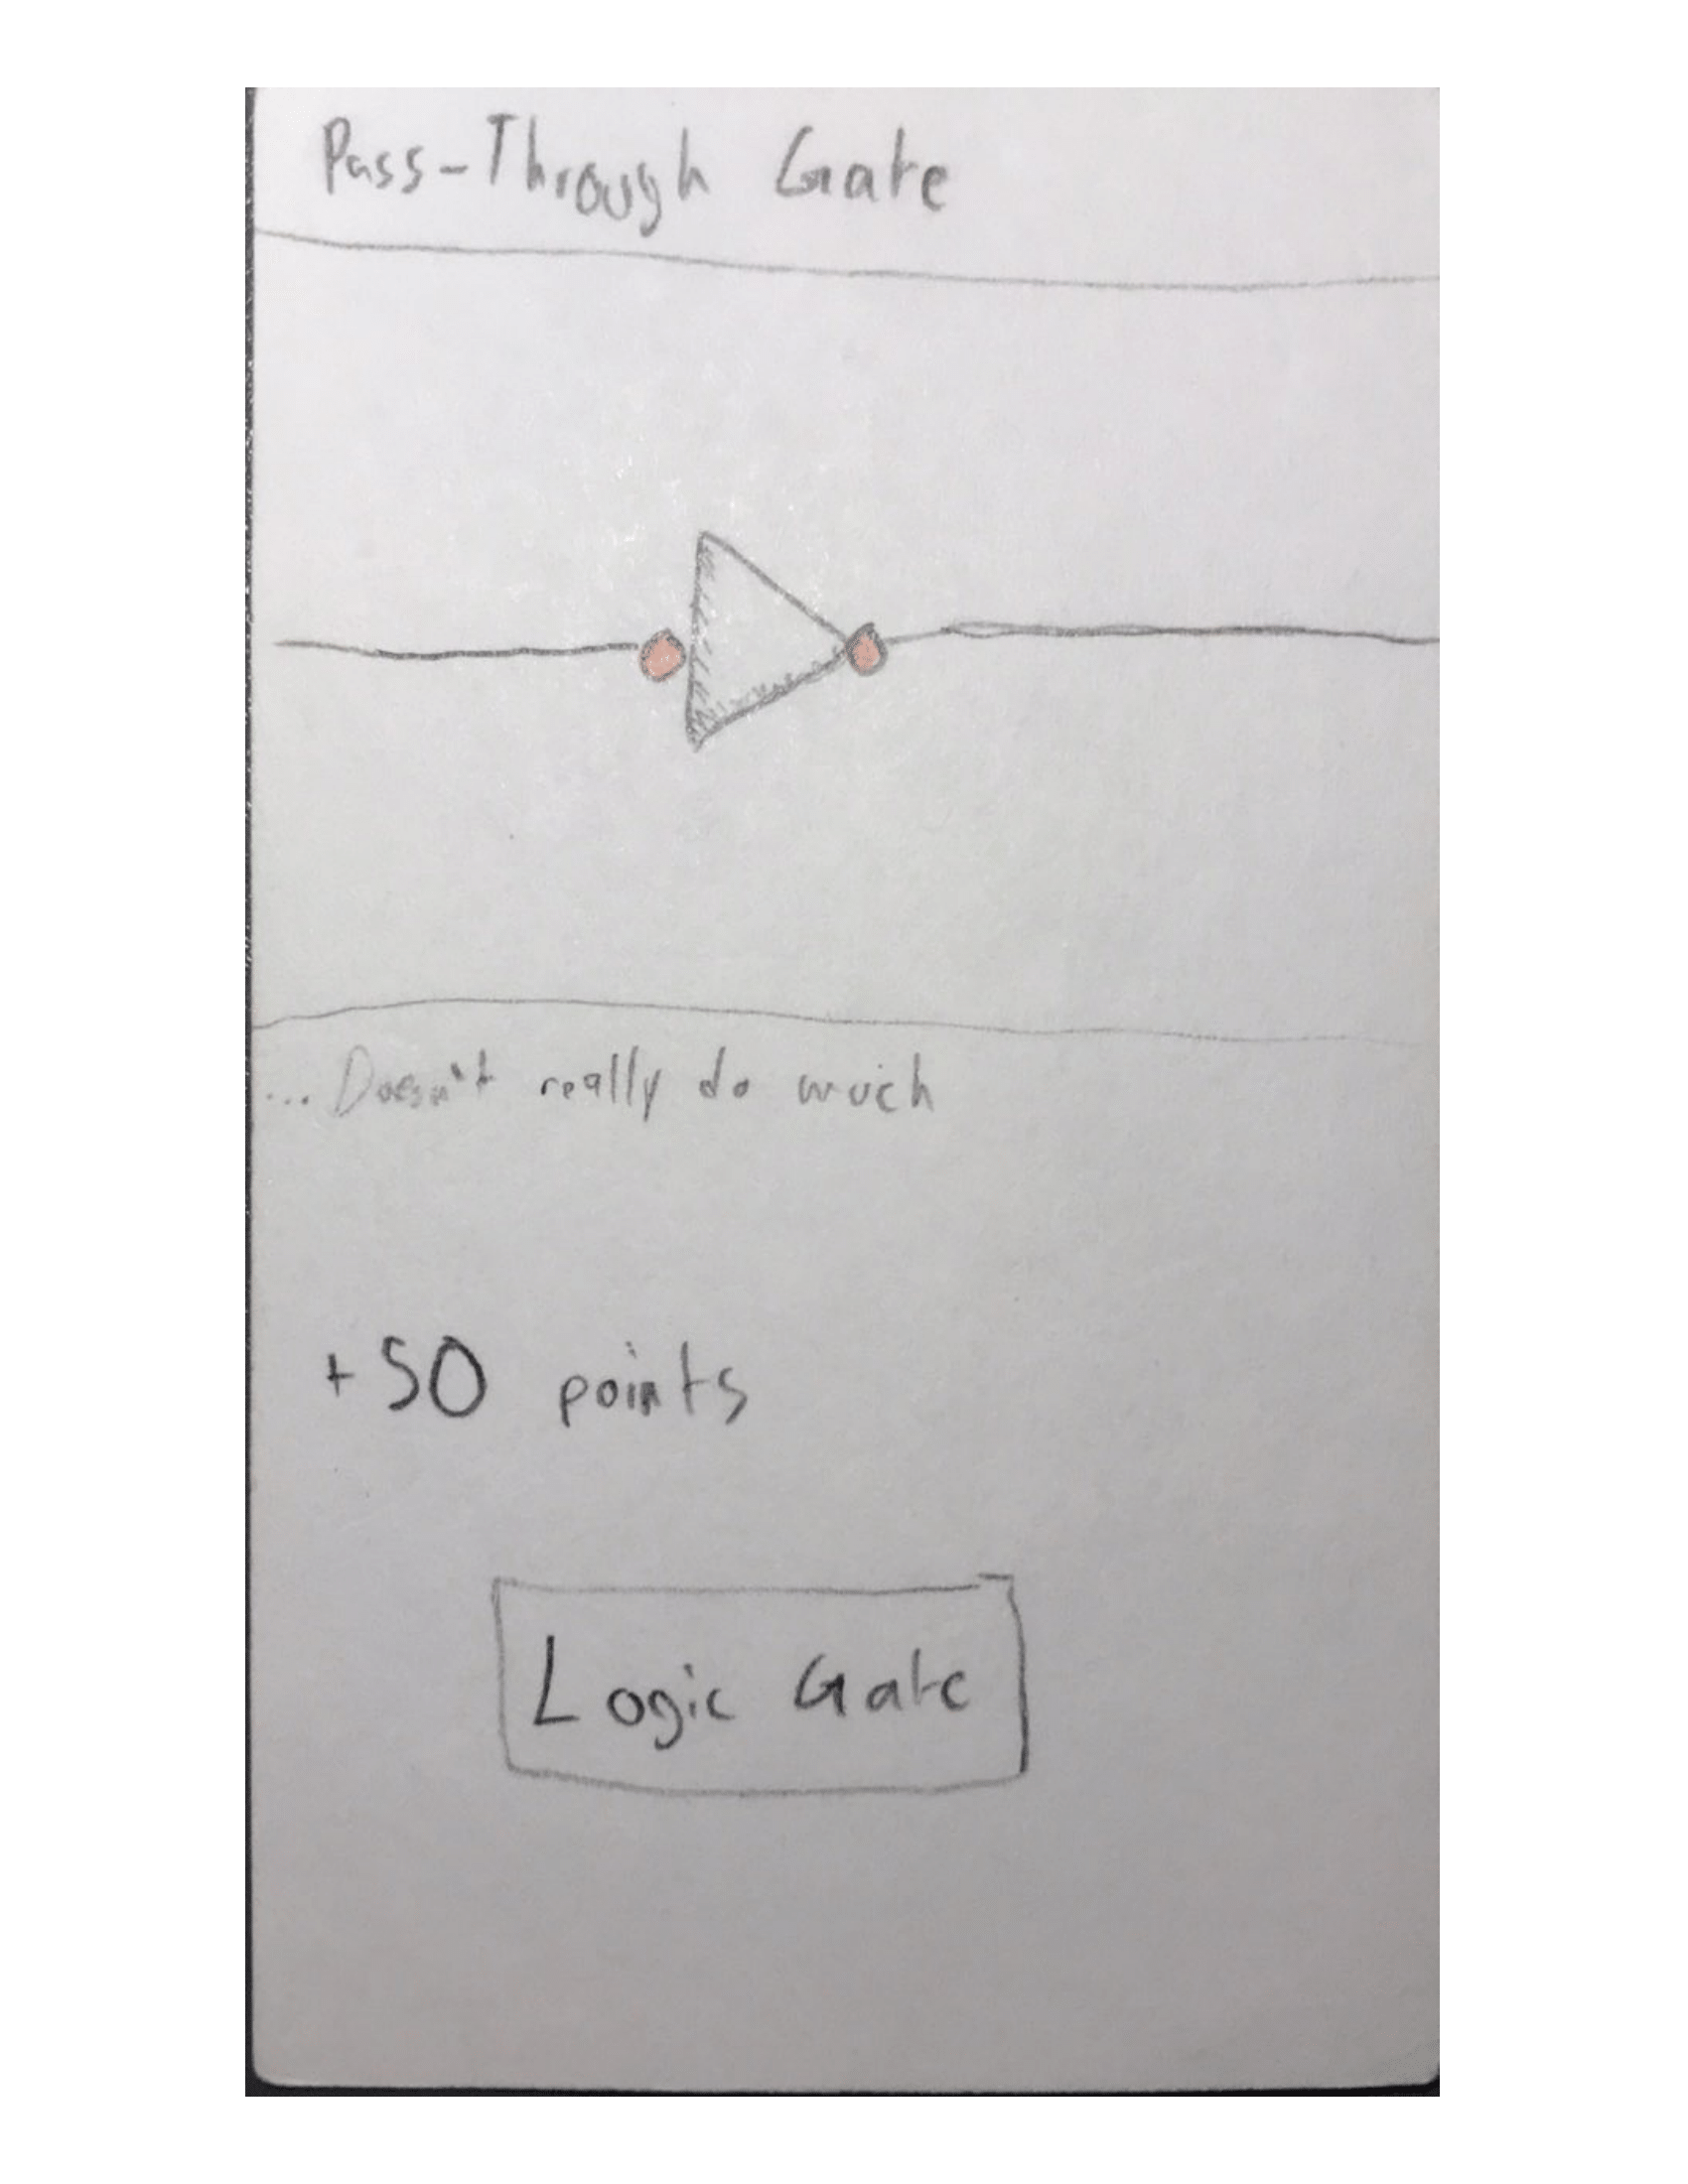 Pass-Through Gate
... Doesn't really do much
+50 points
Logic Gate